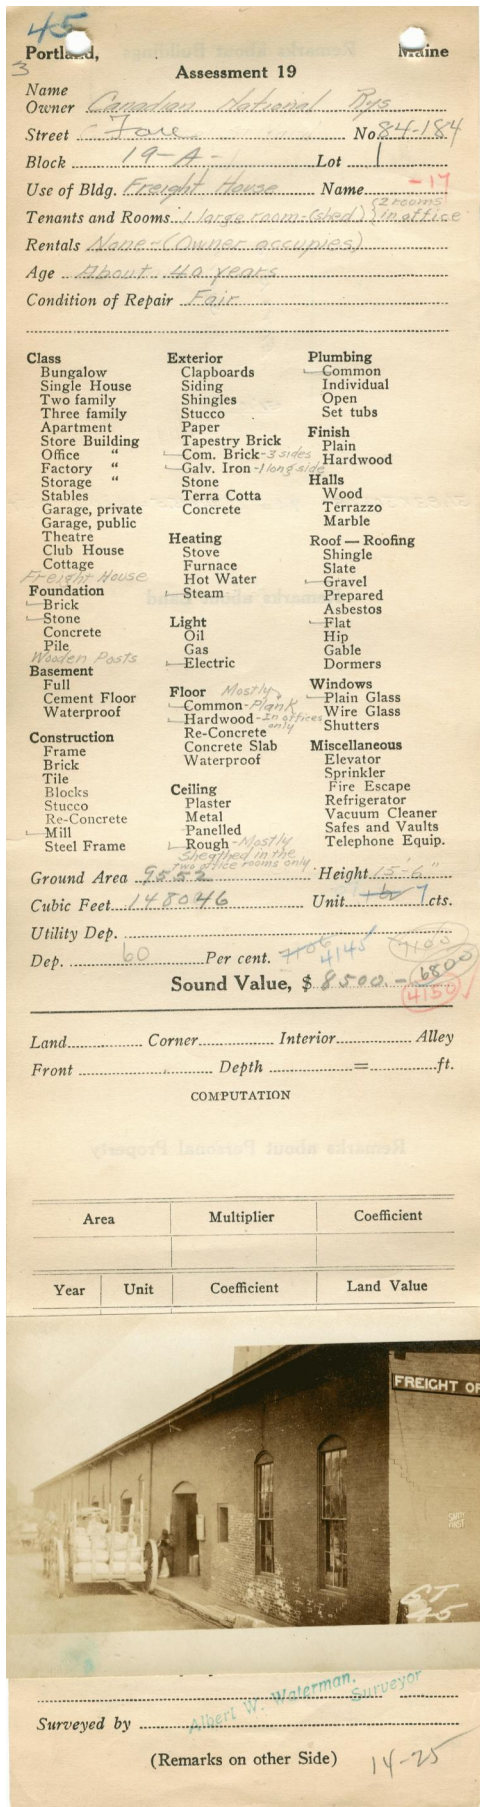 45
Portland, Maine
3
Assessment 19
Name
Owner Canadian National Rys
Street Fore No 84-184
Block 19-A- Lot 1
-17
Use of Bldg. Freight House Name
Tenants and Rooms 1 large room-(shed) {2 rooms in office
Rentals None-(Owner occupies)
Age About 40 years
Condition of Repair Fair
Class
Bungalow
Single House
Two family
Three family
Apartment
Store Building
Office "
Factory "
Storage "
Stables
Garage, private
Garage, public
Theatre
Club House
Cottage
Freight House
Foundation
Brick
Stone
Concrete
Pile
Wooden Posts
Basement
Full
Cement Floor
Waterproof
Construction
Frame
Brick
Tile
Blocks
Stucco
Re-Concrete
Mill
Steel Frame
Exterior
Clapboards
Siding
Shingles
Stucco
Paper
Tapestry Brick
Com. Brick-3 sides
Galv. Iron-1 long side
Stone
Terra Cotta
Concrete
Heating
Stove
Furnace
Hot Water
Steam
Light
Oil
Gas
Electric
Floor Mostly
Common-Plank
Hardwood-In offices only
Re-Concrete
Concrete Slab
Waterproof
Ceiling
Plaster
Metal
Panelled
Rough-Mostly
Sheathed in the
two office rooms only
Plumbing
Common
Individual
Open
Set tubs
Finish
Plain
Hardwood
Halls
Wood
Terrazzo
Marble
Roof — Roofing
Shingle
Slate
Gravel
Prepared
Asbestos
Flat
Hip
Gable
Dormers
Windows
Plain Glass
Wire Glass
Shutters
Miscellaneous
Elevator
Sprinkler
Fire Escape
Refrigerator
Vacuum Cleaner
Safes and Vaults
Telephone Equip.
Ground Area 9552 Height 15'-6"
Cubic Feet 148046 Unit 7 cts.
Utility Dep.
Dep. 60 Per cent. 7106 4145 7100
Sound Value, $ 8500.- 6800
4150
Land Corner Interior Alley
Front Depth = ft.
COMPUTATION
Area Multiplier Coefficient
Year Unit Coefficient Land Value
FREIGHT OF
SAFETY FIRST
GT
45
Albert W. Waterman, Surveyor
Surveyed by
(Remarks on other Side)
14-25